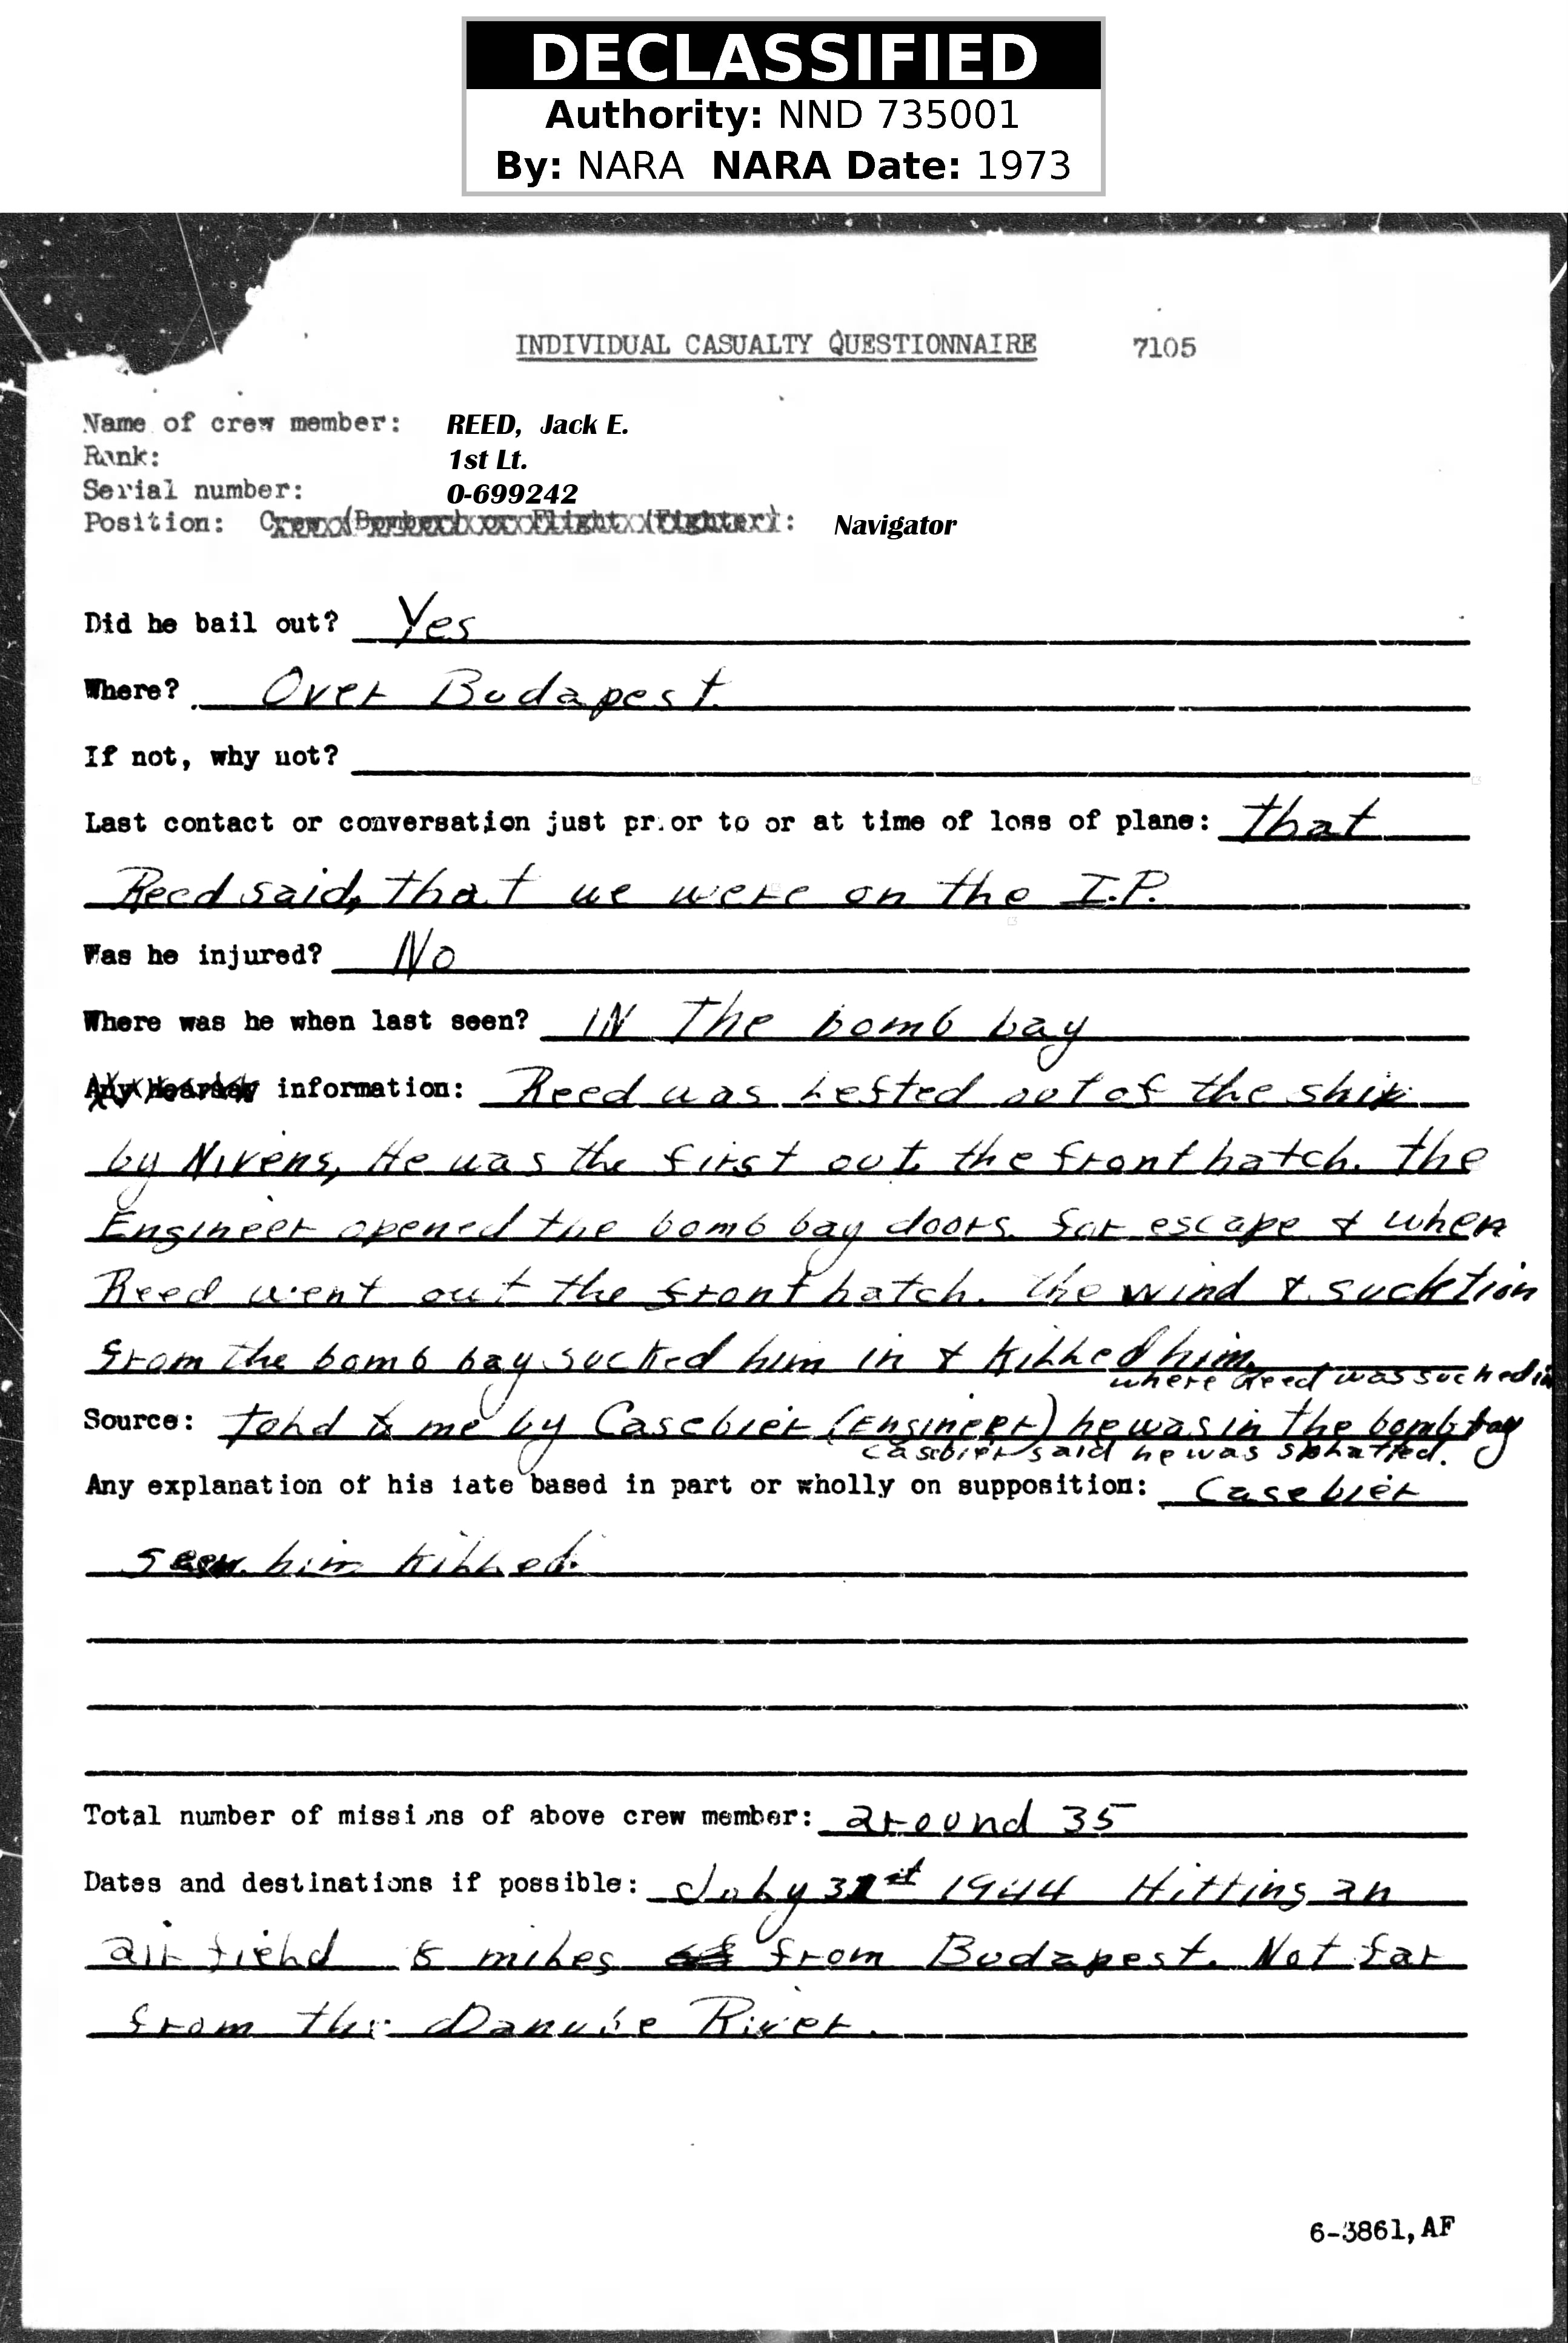 DECLASSIFIED
Authority: NND 735001
By: NARA NARA Date: 1973
INDIVIDUAL CASUALTY QUESTIONNAIRE 7105
Name of crew member: REED, Jack E.
Rank: 1st Lt.
Serial number: 0-699242
Position: Crew (Bomber) or Flight (Fighter): Navigator
Did he bail out? Yes
Where? Over Budapest.
If not, why not?
Last contact or conversation just prior to or at time of loss of plane: that
Reed said, that we were on the I.P.
Was he injured? No
Where was he when last seen? IN The bomb bay
Any hearsay information: Reed was hefted out of the ship
by Nivens, He was the first out the front hatch. The
Engineer opened the bomb bay doors. for escape & when
Reed went out the front hatch. The wind & sucktion
from the bomb bay sucked him in & killed him.
where Reed was sucked in
Source: told to me by Casebier (Engineer) he was in the bomb bay
Casebier said he was splatted.
Any explanation of his fate based in part or wholly on supposition: Casebier
seen him killed.
Total number of missions of above crew member: around 35
Dates and destinations if possible: July 31st 1944 Hitting an
air field 8 miles from Budapest. Not far
from the Danube River.
6-3861, AF